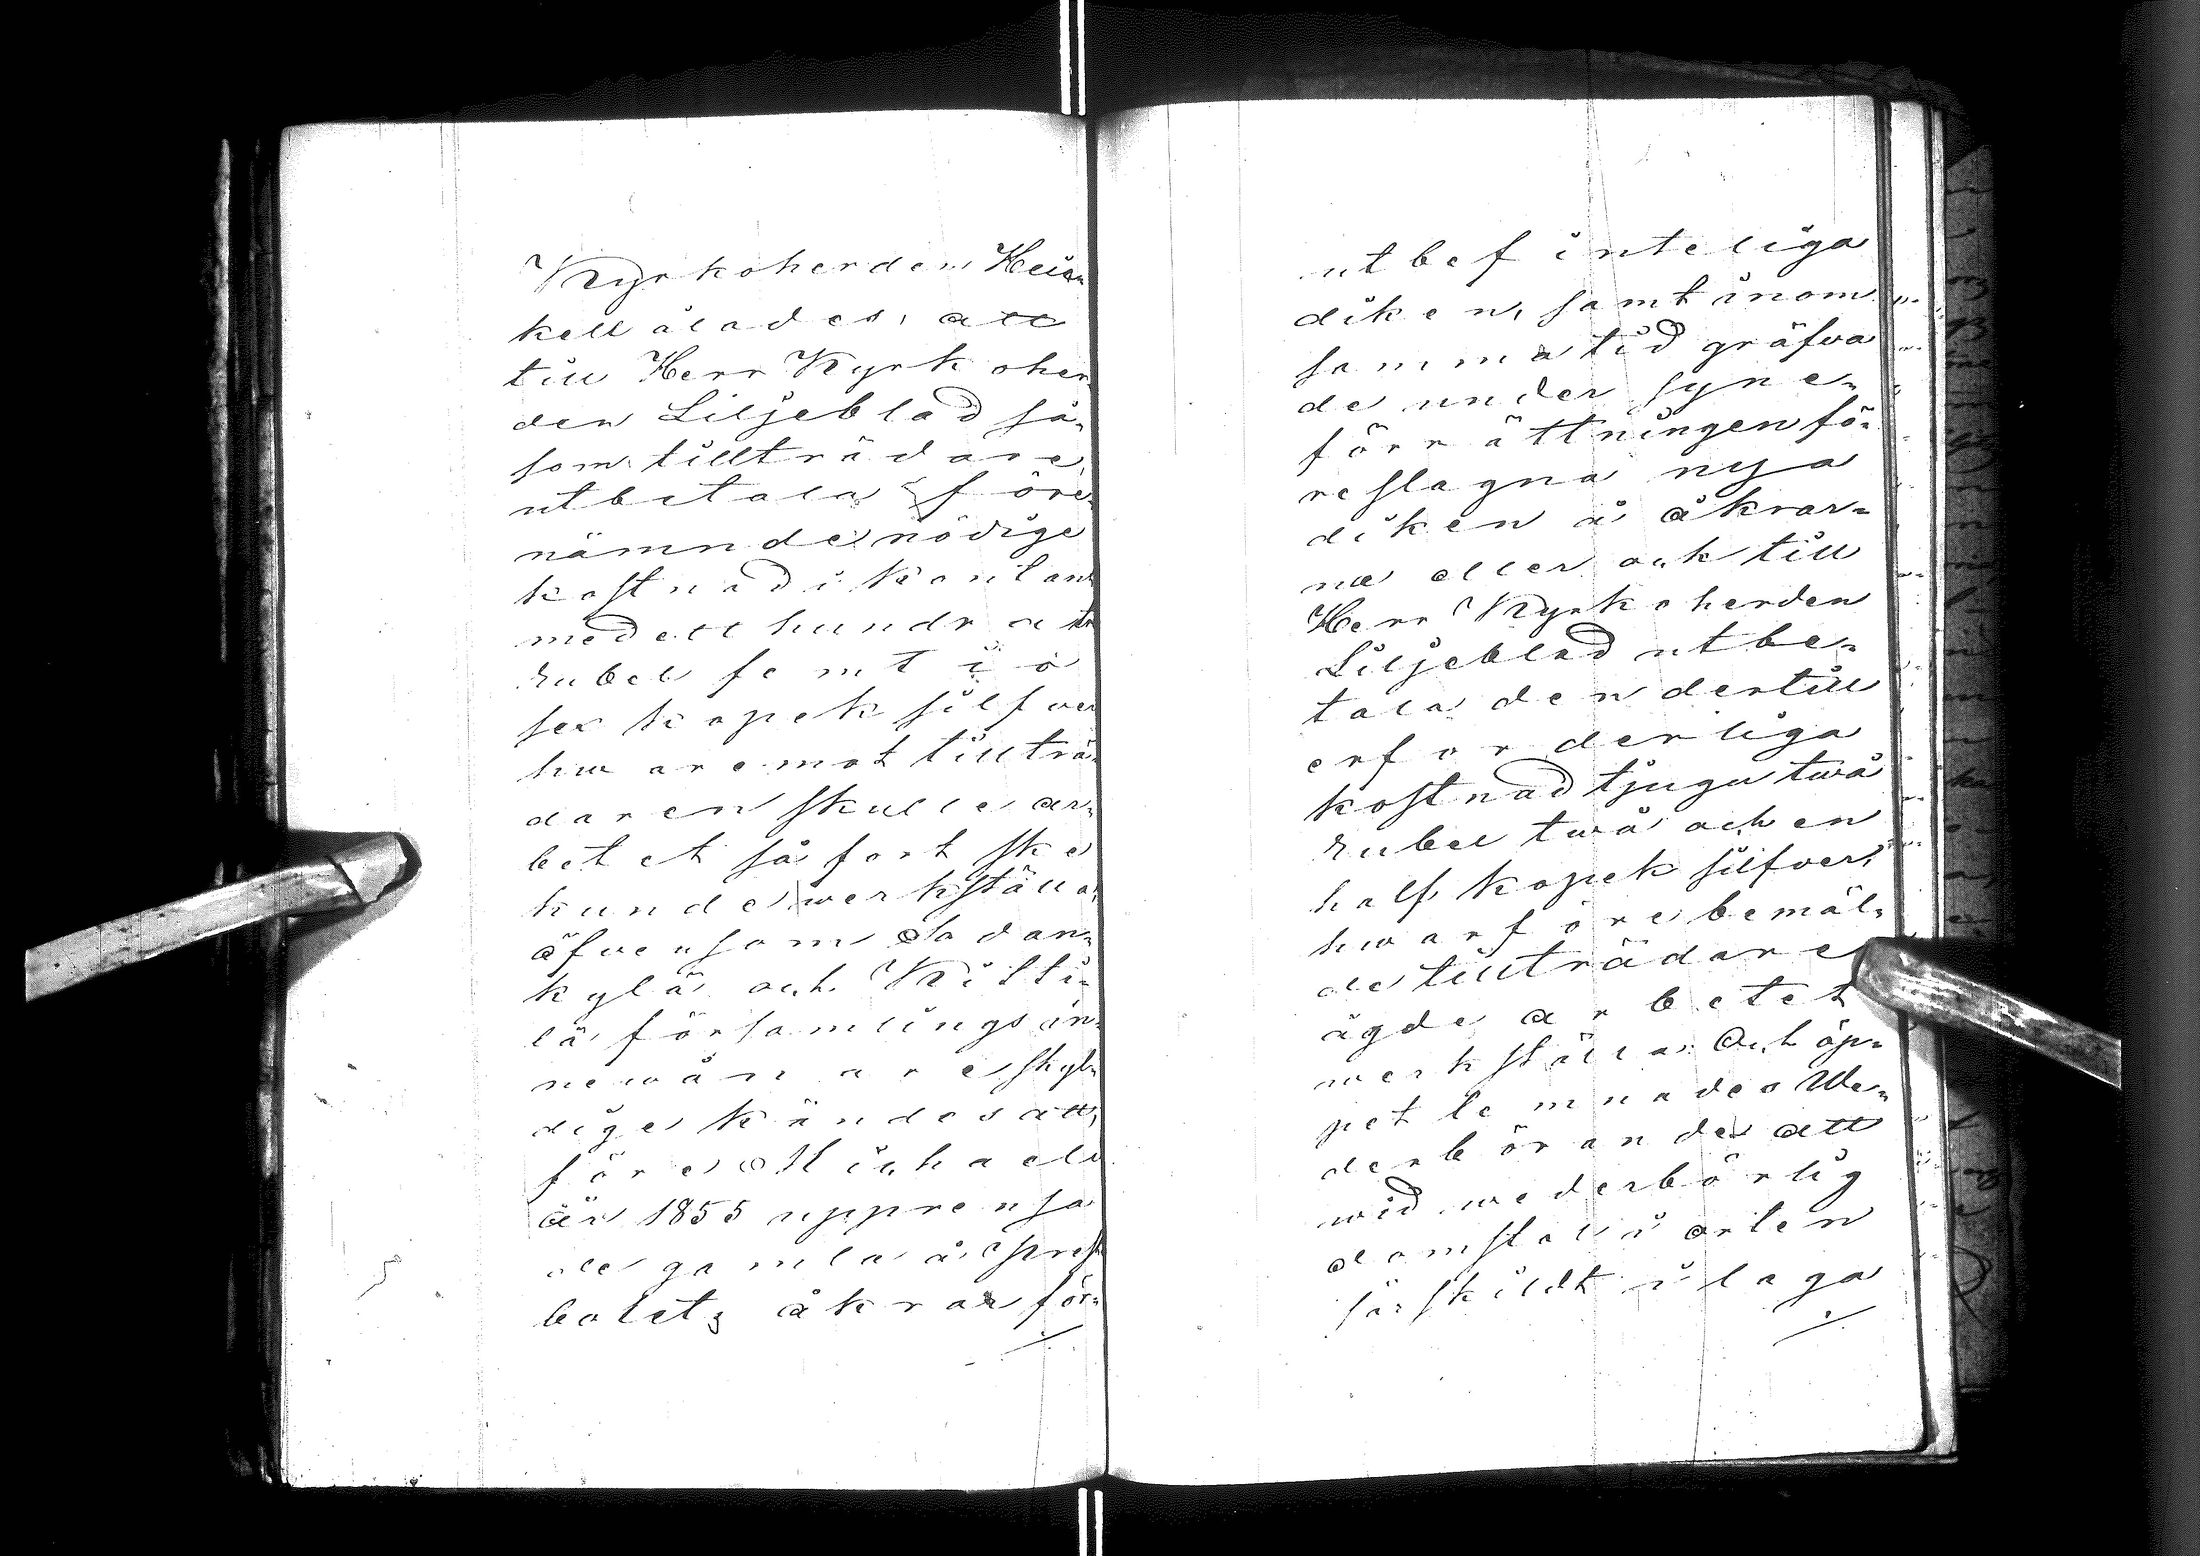 Kyrkoherden Hein-
kell ålades, att
till Herr Kyrkoher-
den Liljeblad så-
som tillträdare
utbetala före-
nämnde nödige
kostnad i kontant
med ett hundra tre
rubel femtio
sex kopek silfver
hwaremot tillträ-
daren skulle ar-
betet så fort ske
kunde werkställa,
äfwensom Sadan-
kylä och Kitti-
lä församlings in-
newånare skyl-
dige kändes att,
före Michaeli
år 1855 upprensa
de gamla å Prest-
boletz åkrar för-
utbefinteliga
diken, samt inom
samma tid gräfwa
de under syne-
förrättningen fö-
reslagna nya
diken å åkrar-
na eller och till
Herr Kyrkoherden
Liljeblad utbe-
tala den dertill
erforderliga
kostnad tjugu twå
rubel twå och en
half kopek silfver,
hwarföre bemäl-
de tillträdare
ägde arbetet
werkställa. Och öp-
pet lemnades We-
derbörande att
wid wederbörlig
domstol i orten
särskildt i laga